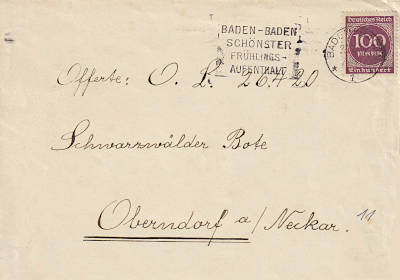 BADEN-BADEN
SCHÖNSTER
FRÜHLINGS-
AUFENTHALT
BAD
Deutsches Reich
100
MARK
Einhundert
Offerte: O. L. 26420
Schwarzwälder Bote
Oberndorf a/Neckar.
11